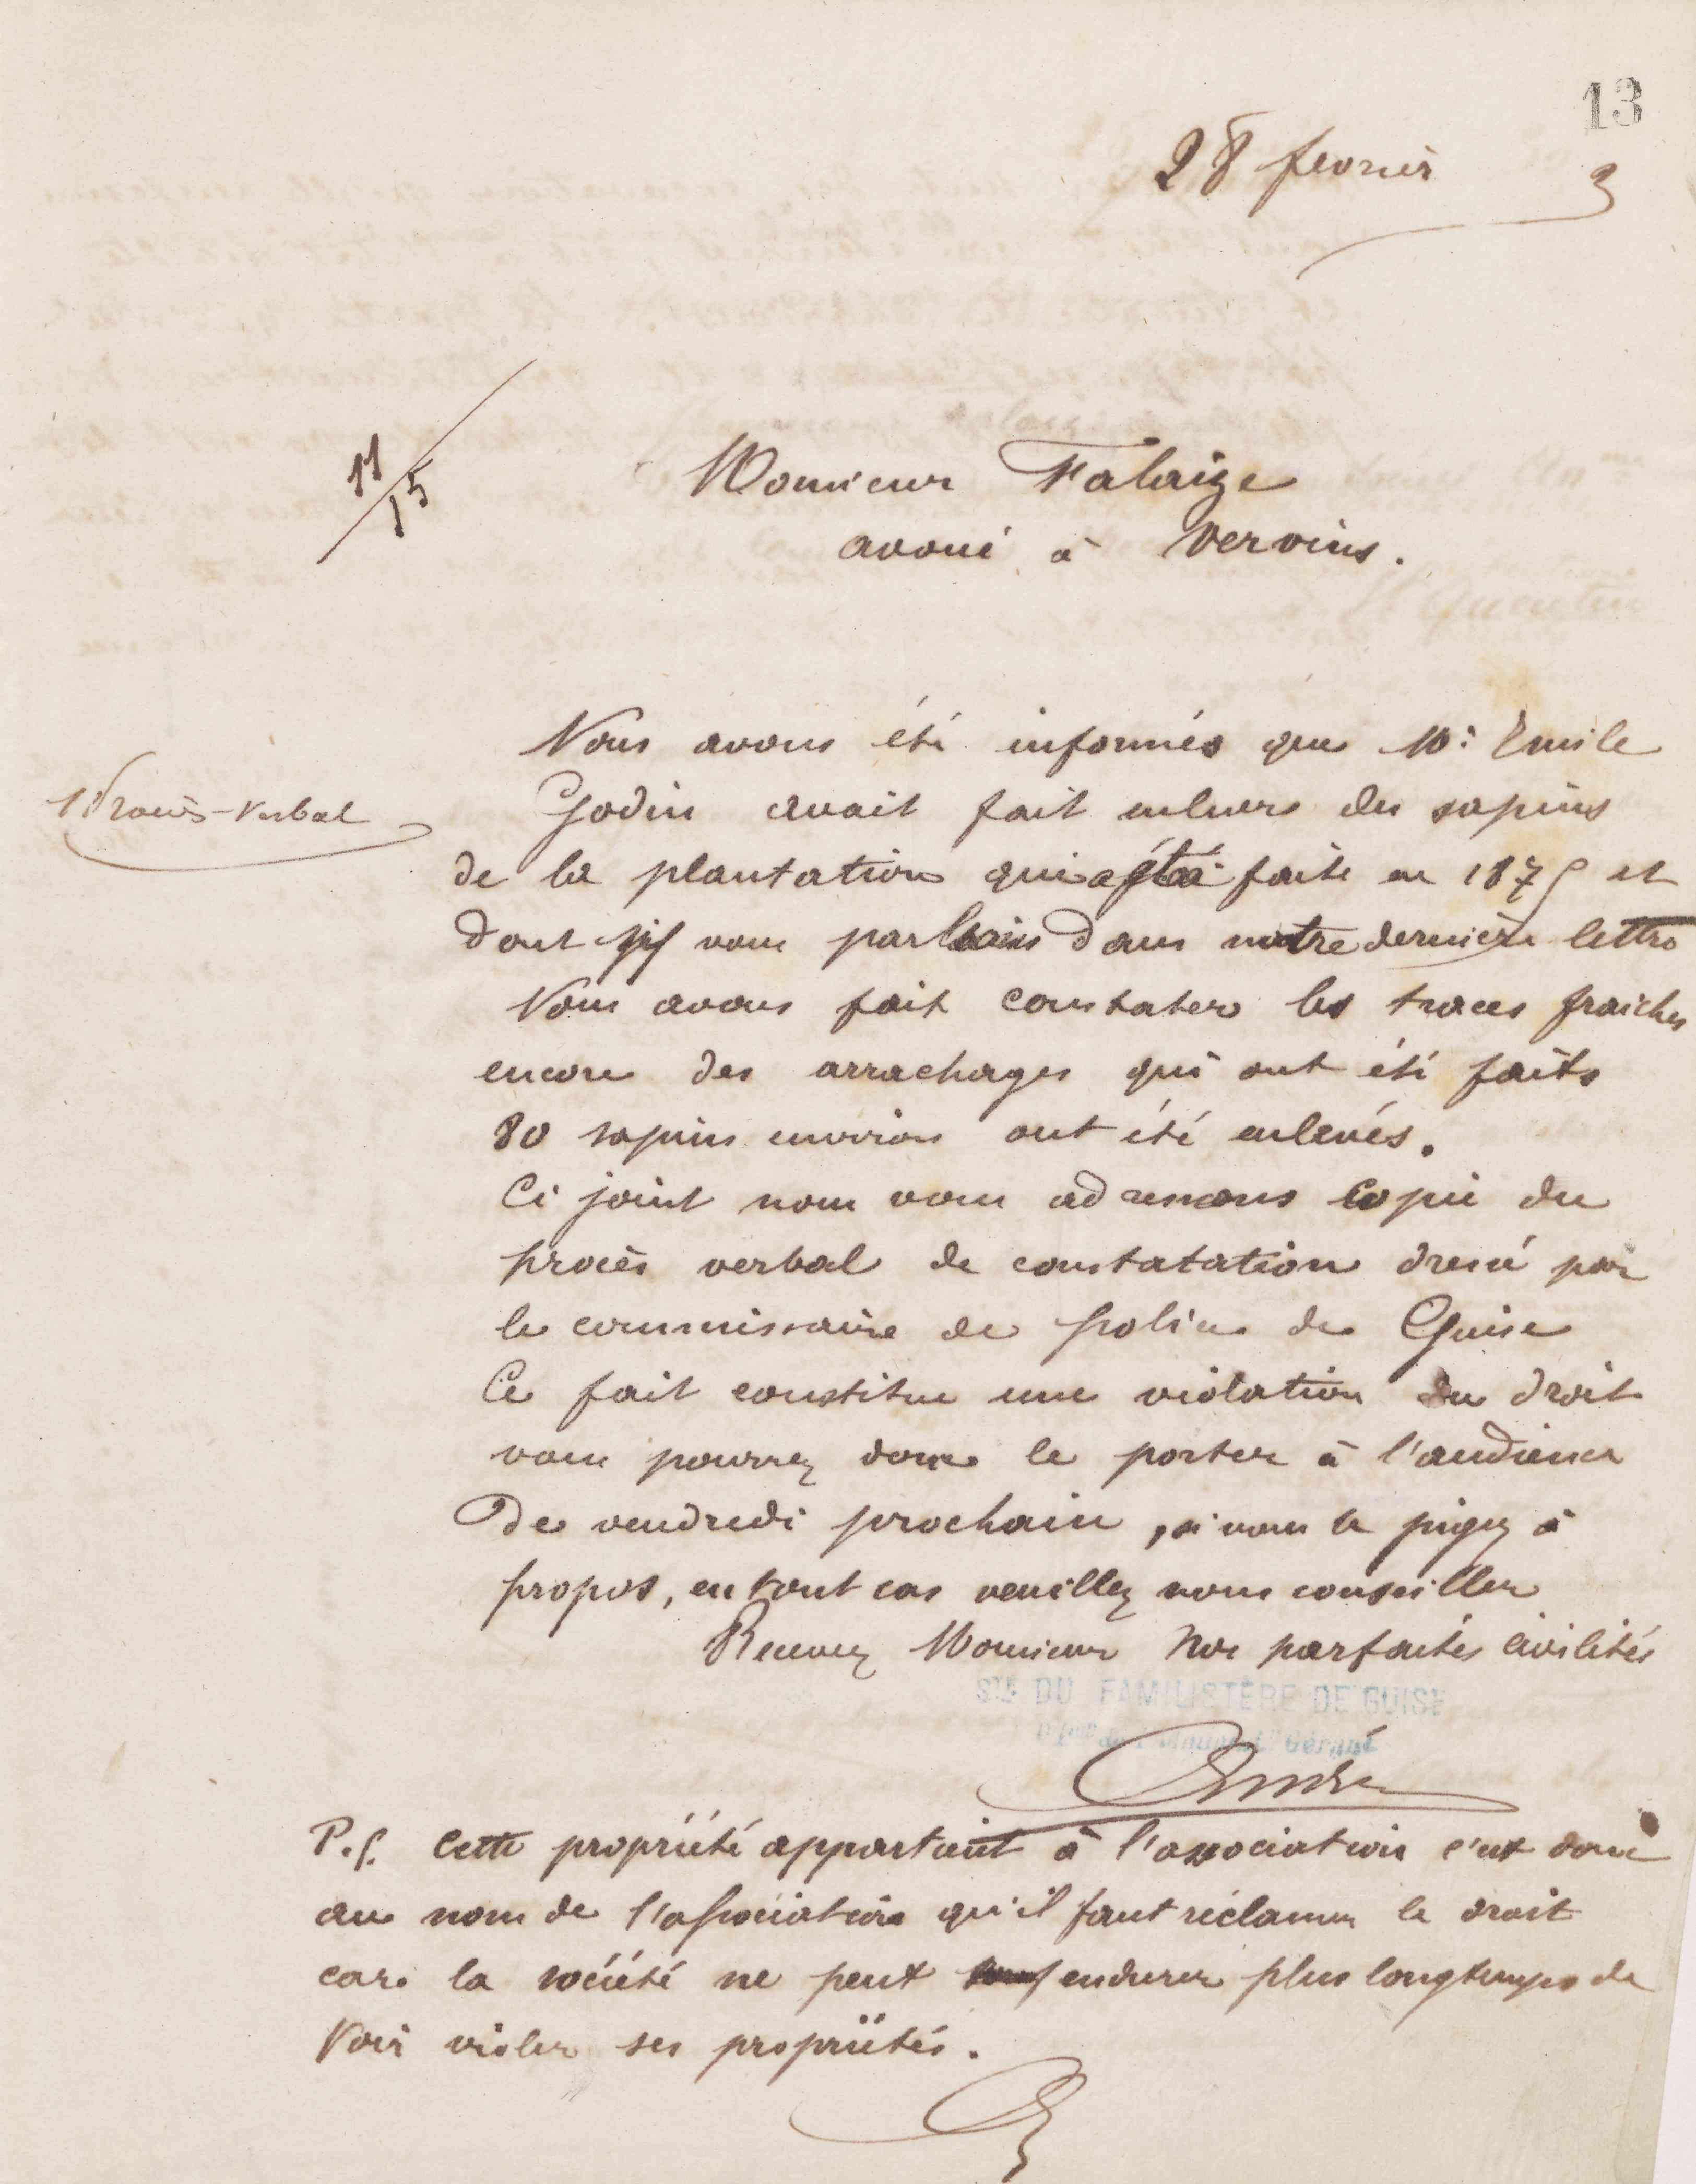 13
28 fevrier
3
11/15
Monsieur Falaize
avoué à Vervins.
Nous avons été informés que Mr Emile
1 Procès-Verbal
Godin avait fait enlever des sapins
de la plantation qui a été faite en 1875 et
dont vous parlais dans notre dernière lettre
Nous avons fait constater les traces fraiches
encore des arrachages qui ont été faits
80 sapins environ ont été enlevés.
Ci joint nous vous adressons copie du
procès verbal de constatation dressé par
le commissaire de police de Guise
Ce fait constitue une violation du droit
vous pourrez donc le porter à l'audience
de vendredi prochain, si vous le jugez à
propos, en tout cas veuillez nous conseiller
Recevez Monsieur Nos parfaites civilités
STÉ DU FAMILISTÈRE DE GUISE
Gérant
P.S. Cette propriété appartient à l'association c'est donc
au nom de l'association qu'il faut réclamer le droit
car la société ne peut endurer plus longtemps de
voir violer ses propriétés.